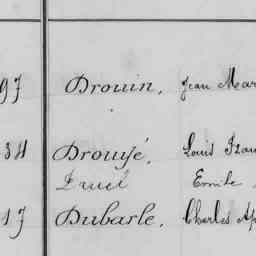 97 Drouin, Jean Mar
34 Drouyé, Louis
Druel Emile
17 Dubarle, Charles